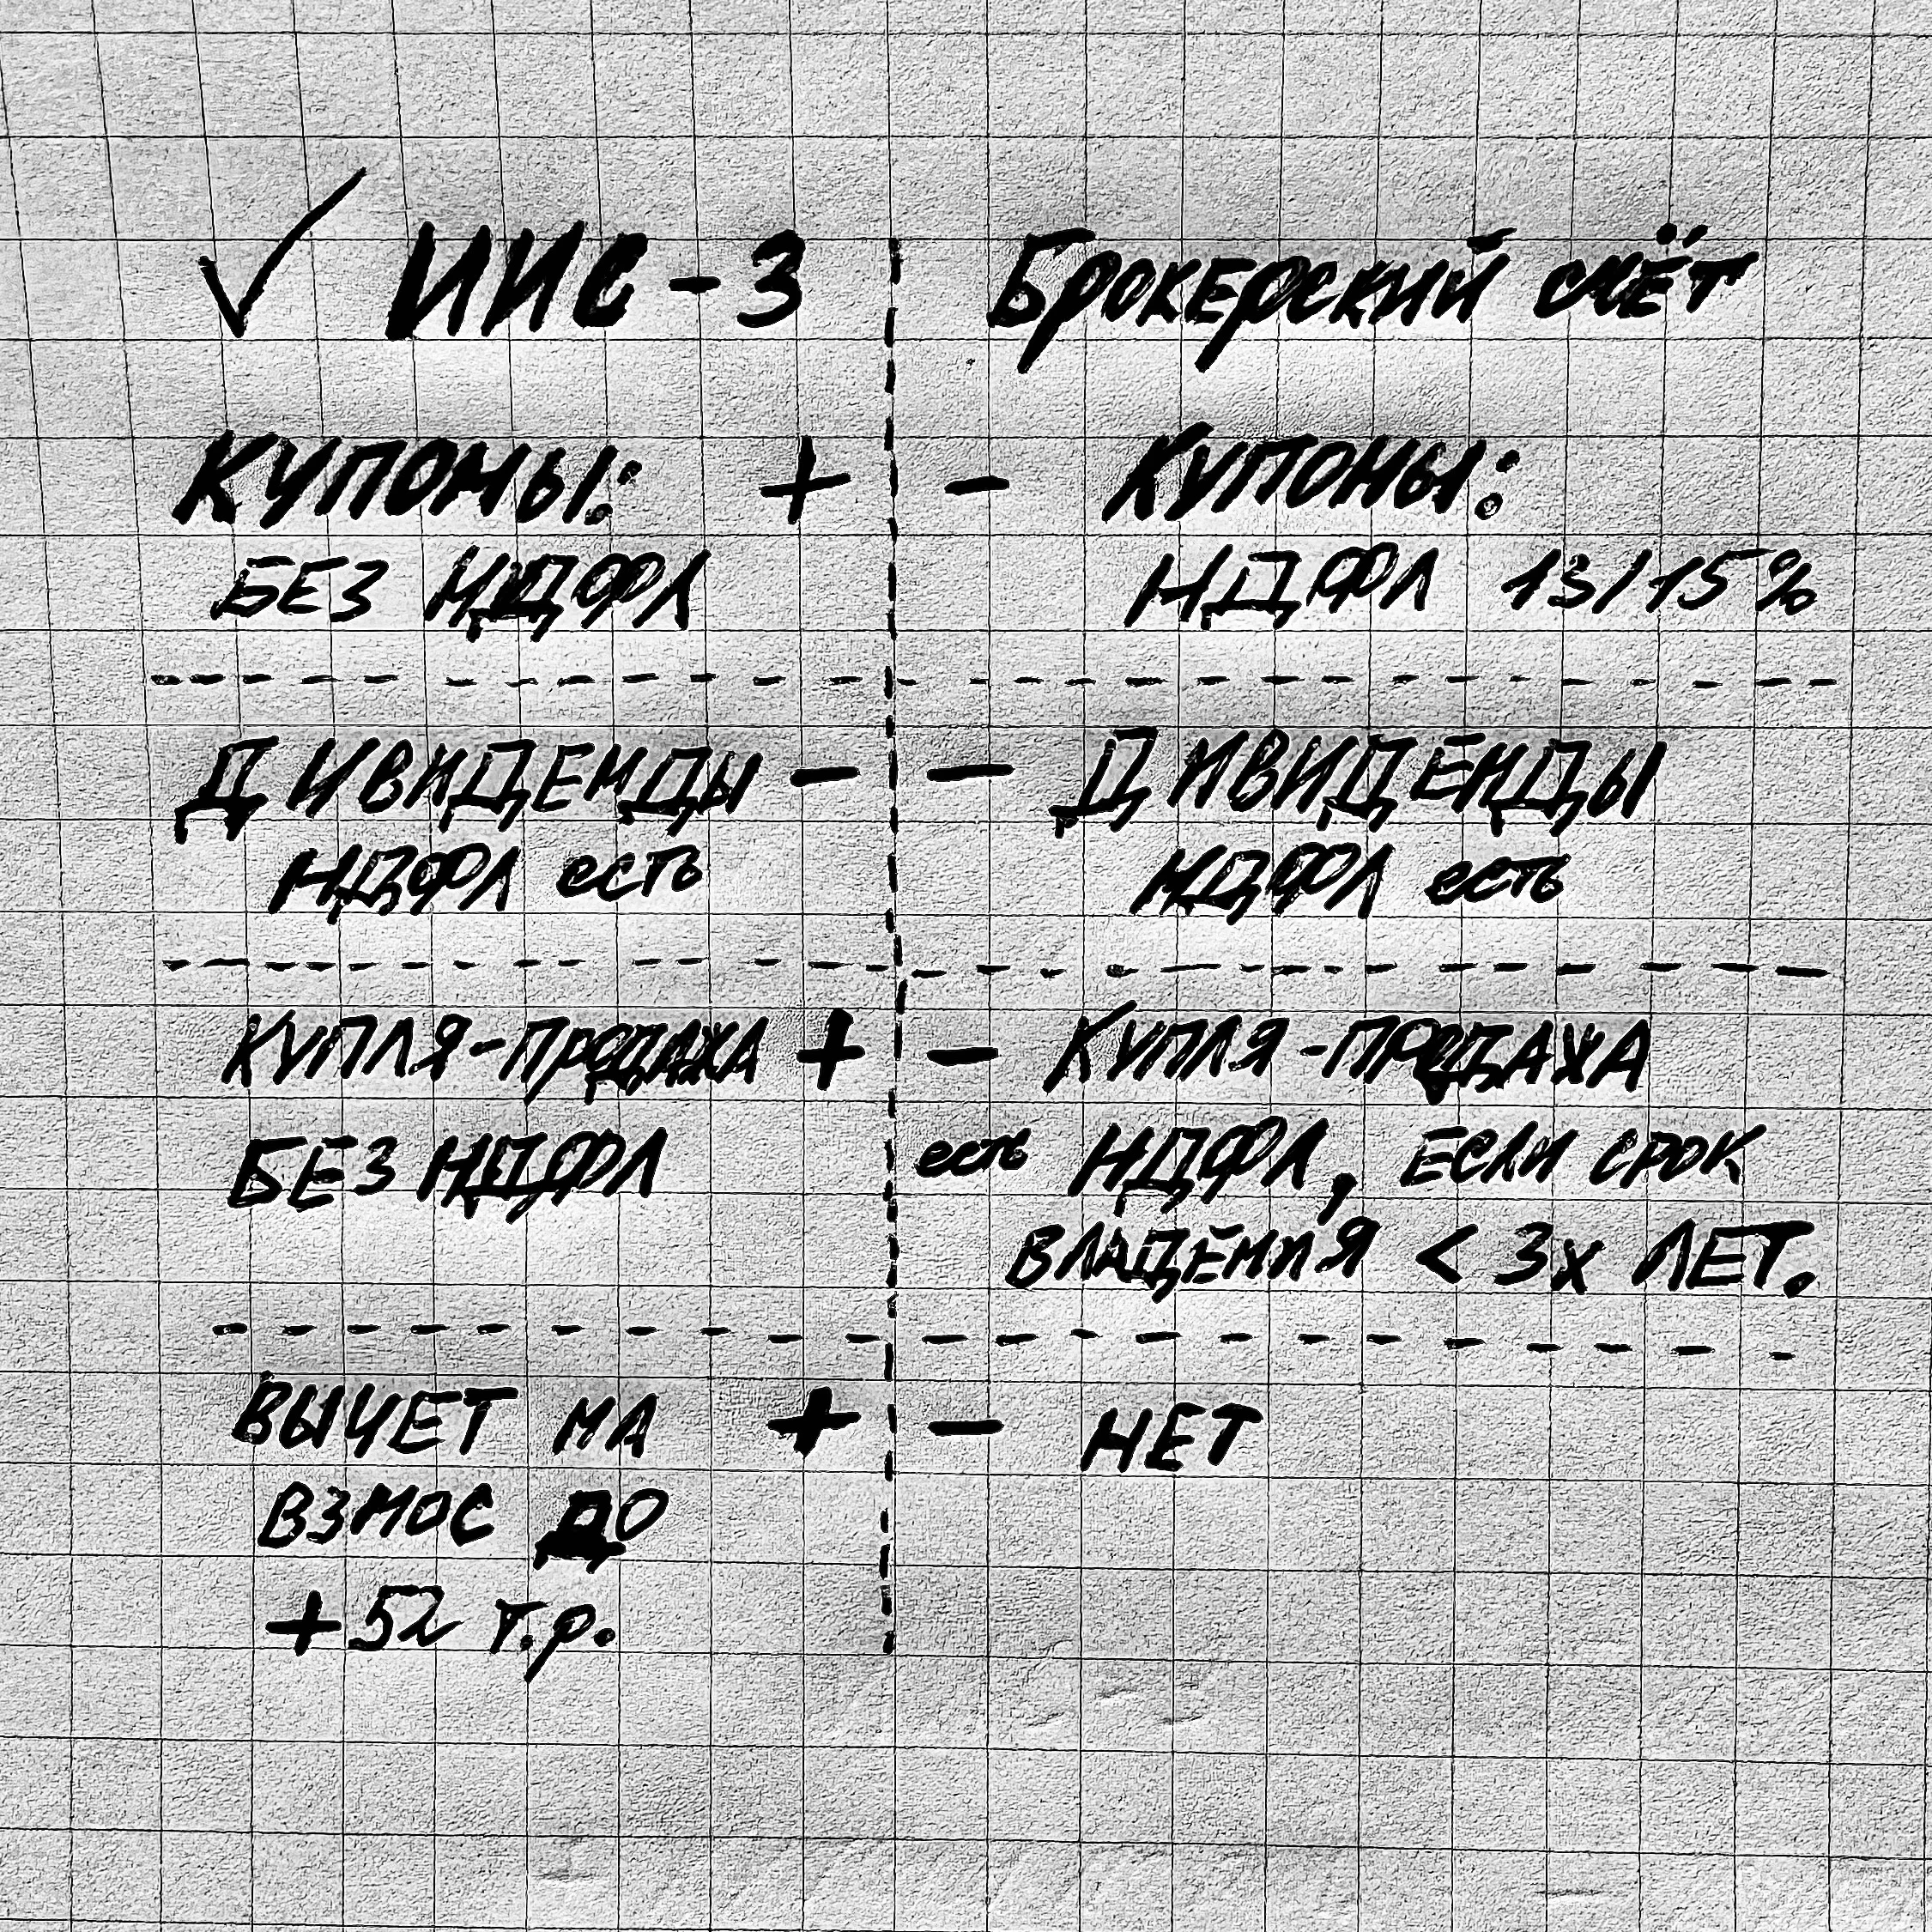 ✓ ИИС-3
Купоны: +
БЕЗ НДФЛ
Дивиденды -
НДФЛ есть
Купля-продажа +
БЕЗ НДФЛ
Вычет на +
взнос до
+52 т.р.
Брокерский счёт
- Купоны:
НДФЛ 13/15%
- Дивиденды
НДФЛ есть
- Купля-продажа
есть НДФЛ, если срок
владения < 3х лет.
- НЕТ